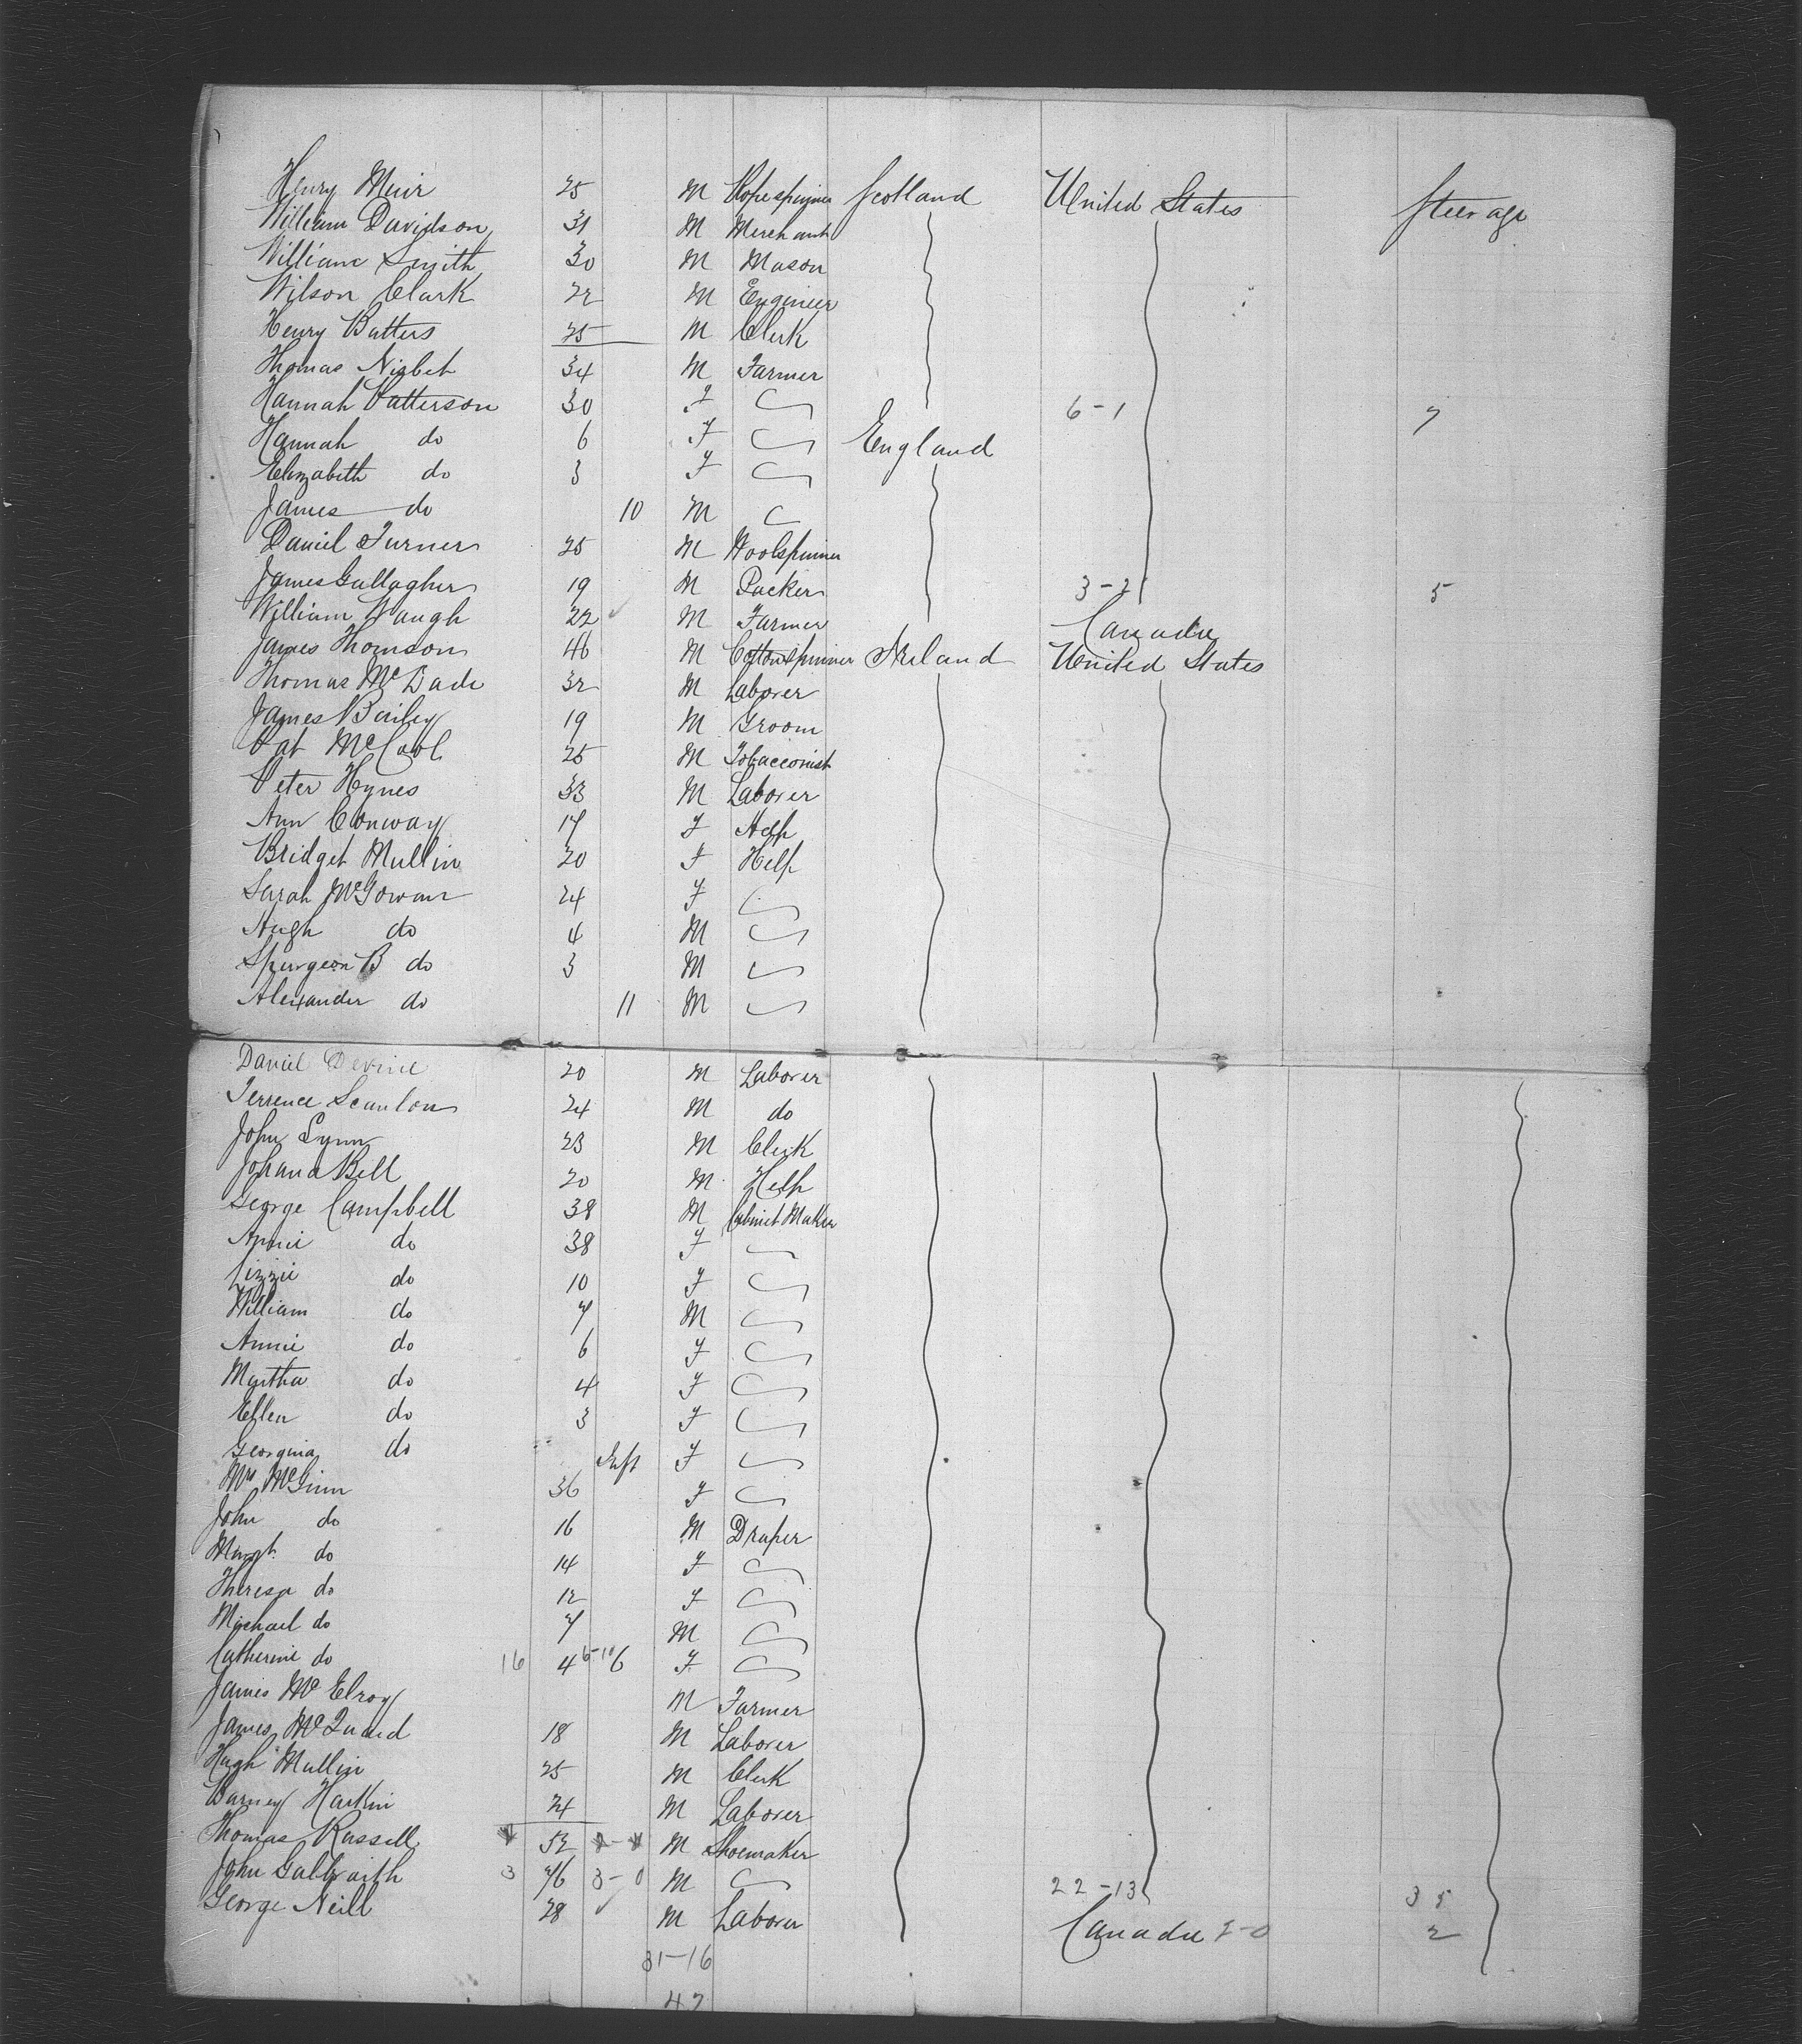 Henry Muir 25 M Ropespinner Scotland United States Steerage
William Davidson 31 M Merchant
William Smith 30 M Mason
Wilson Clark 22 M Engineer
Henry Batters 25 M Clerk
Thomas Nisbet 34 M Farmer
Hannah Patterson 30 F 6-1 7
Hannah do 6 F England
Elizabeth do 3 F
James do 10 M
Daniel Turner 25 M Woolspinner
James Gallagher 19 M Packer 3-2 5
William Waugh 22 M Farmer Canada
James Thomson 46 M Cottonspinner Ireland United States
Thomas McDade 32 M Laborer
James Bailey 19 M Groom
Pat McCool 25 M Tobacconist
Peter Hynes 33 M Laborer
Ann Conway 17 F Help
Bridget Mullin 20 F Help
Sarah McGowan 24 F
Hugh do 4 M
Spurgeon B do 3 M
Alexander do 11 M
Daniel Devine 20 M Laborer
Terrence Scanlon 24 M do
John Lynn 23 M Clerk
Johana Bell 20 M Help
George Campbell 38 M Cabinet Maker
Annie do 38 F
Lizzie do 10 F
William do 7 M
Annie do 6 F
Martha do 4 F
Ellen do 3 F
Georgina do Inft F
Mrs McGinn 36 F
John do 16 M Draper
Margt. do 14 F
Theresa do 12 F
Michael do 7 M
Catherine do 16 4 6 F
James McElroy M Farmer
James McQuaid 18 M Laborer
Hugh Mullin 25 M Clerk
Barney Harkin 24 M Laborer
Thomas Russell 52 M Shoemaker
John Galbraith 3 46 3-0 M 22-13 35
George Neill 28 M Laborer Canada 2-0 2
31-16
47